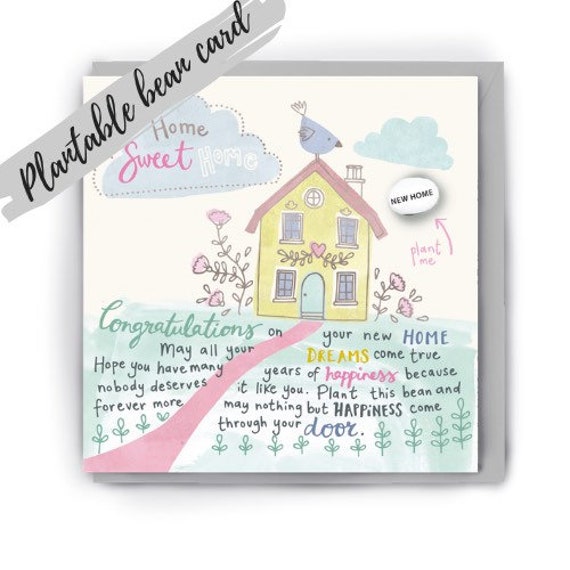 Plantable bean card
Home
Sweet Home
NEW HOME
plant
me
Congratulations on your new HOME
May all your DREAMS come true
Hope you have many years of happiness because
nobody deserves it like you. Plant this bean and
forever more may nothing but HAPPINESS come
through your door.